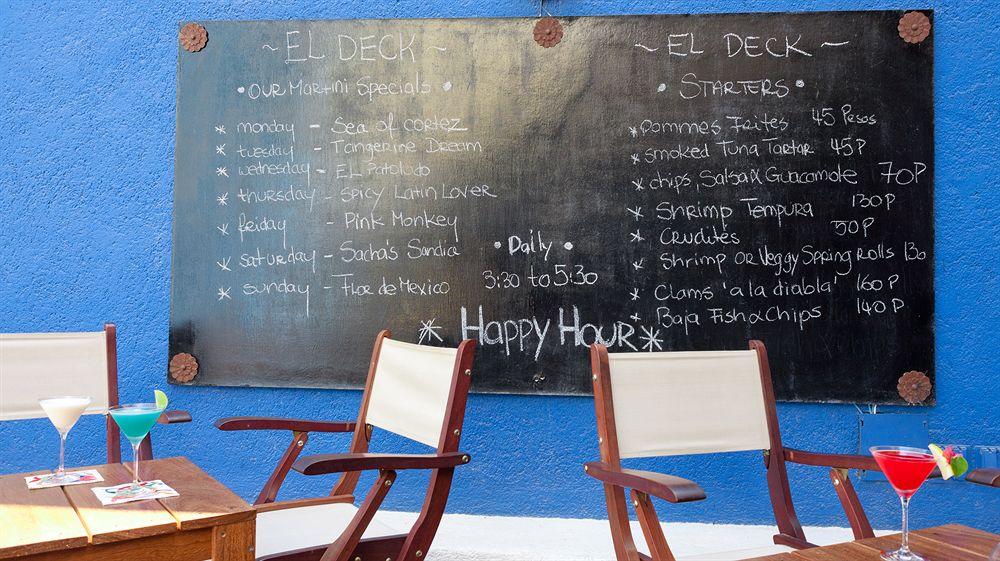 ~ EL DECK ~
• OUR Martini Specials •
* monday - Sea of cortez
* tuesday - Tangerine Dream
* wednesday - EL Patoludo
* thursday - Spicy Latin Lover
* friday - Pink Monkey
* saturday - Sacha's Sandia
* sunday - Flor de Mexico
• Daily •
3:30 to 5:30
* Happy Hour *
~ EL DECK ~
• STARTERS •
* Pommes Frites 45 Pesos
* smoked Tuna Tartar 45P
* chips, Salsa & Guacamole 70P
* Shrimp Tempura 130P
* Crudités 50P
* Shrimp OR Veggy Spring rolls 130
* Clams 'a la diabla' 160 P
* Baja Fish & Chips 140P